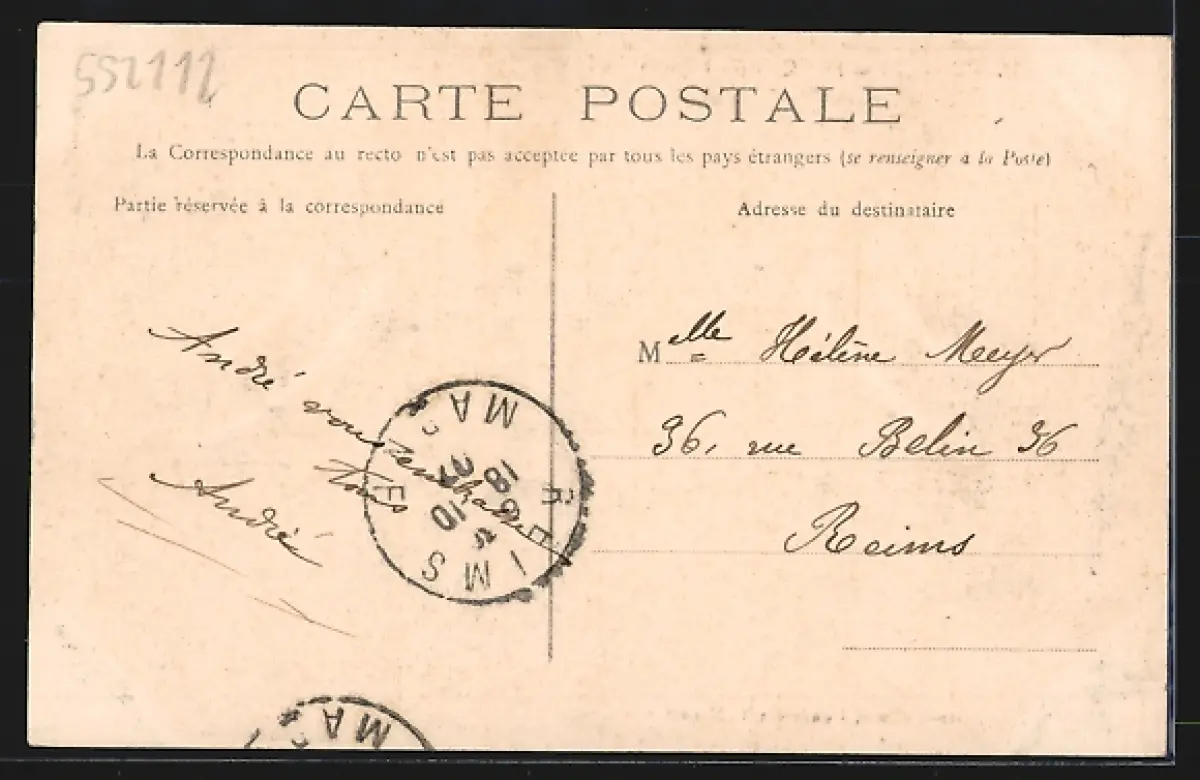 552112
CARTE POSTALE
La Correspondance au recto n'est pas acceptée par tous les pays étrangers (se renseigner à la Poste)
Partie réservée à la correspondance
Adresse du destinataire
André vous embrasse
tous
André
Melle Hélène Meyer
36, rue Belin 36
Reims
REIMS
MA
MA